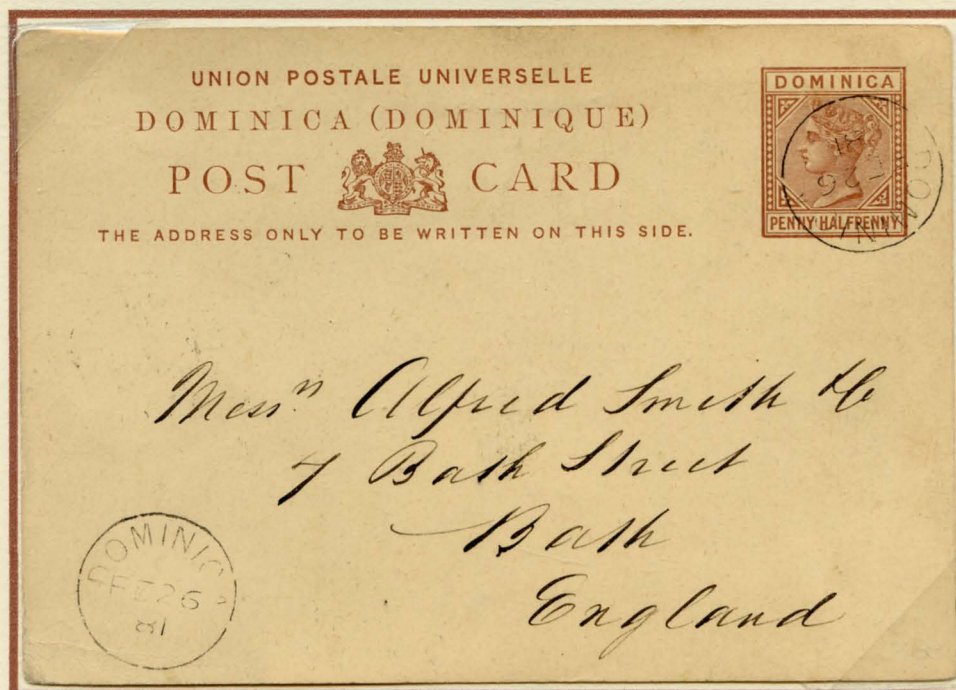 UNION POSTALE UNIVERSELLE
DOMINICA (DOMINIQUE)
POST CARD
THE ADDRESS ONLY TO BE WRITTEN ON THIS SIDE.
DOMINICA
PENNY HALFPENNY
Messrs Alfred Smith & Co
7 Bath Street
Bath
England
DOMINICA
FE 26
81